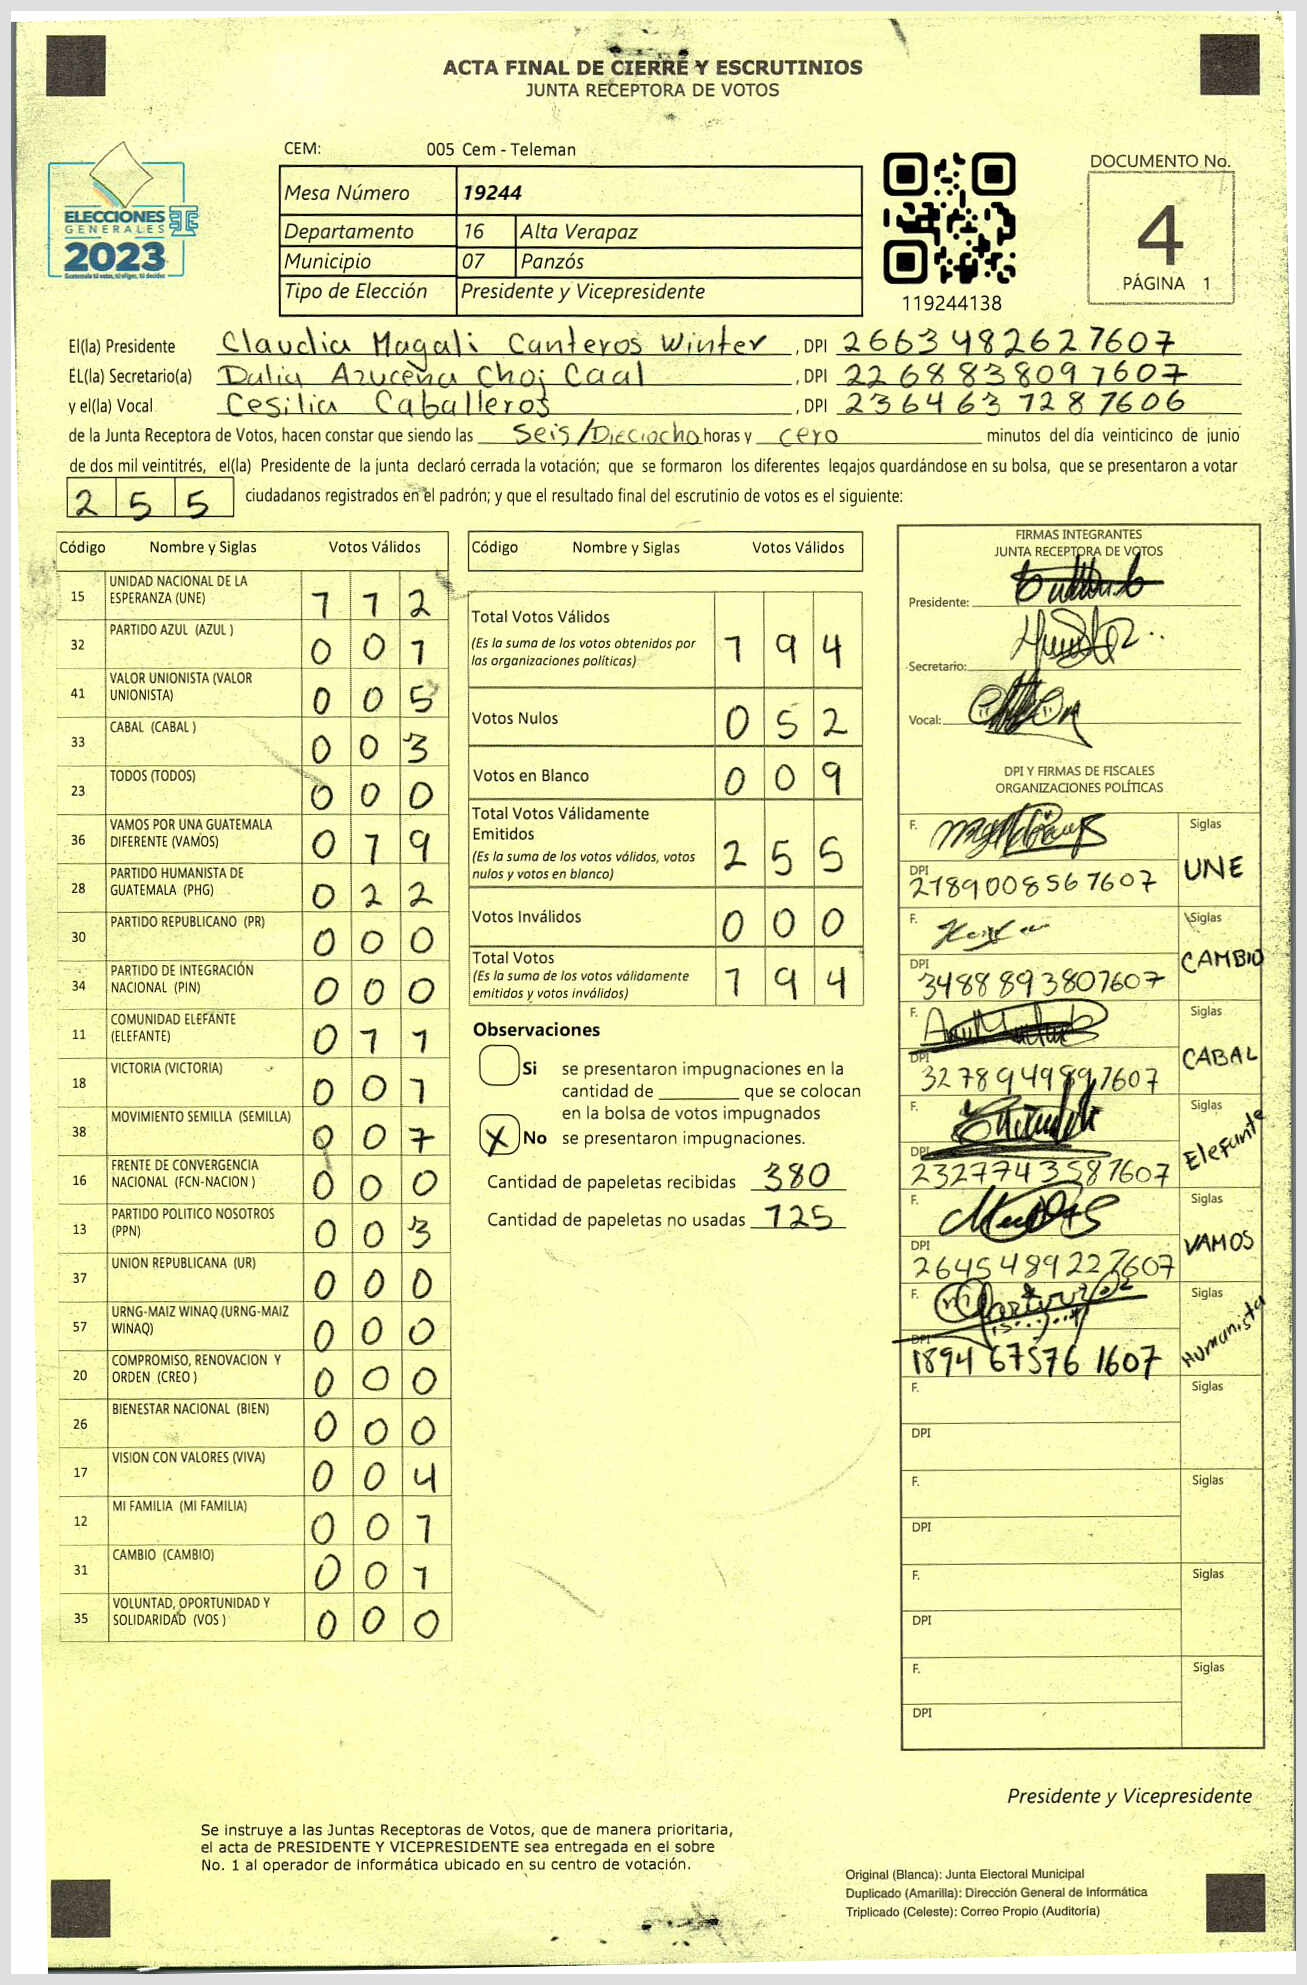 ACTA FINAL DE CIERRE Y ESCRUTINIOS
JUNTA RECEPTORA DE VOTOS
CEM: 005 Cem - Teleman
ELECCIONES
GENERALES
2023
Mesa Número 19244
Departamento 16 Alta Verapaz
Municipio 07 Panzós
Tipo de Elección Presidente y Vicepresidente
119244138
DOCUMENTO No.
4
PÁGINA 1
El(la) Presidente Claudia Magali Canteros Winter, DPI 2663482627607
EL(la) Secretario(a) Dalia Azucena Choj Caal, DPI 2268838097607
y el(la) Vocal Cesilia Caballeros, DPI 2364637287606
de la Junta Receptora de Votos, hacen constar que siendo las Seis/Dieciocho horas y cero minutos del día veinticinco de junio
de dos mil veintitrés, el(la) Presidente de la junta declaró cerrada la votación; que se formaron los diferentes legajos guardándose en su bolsa, que se presentaron a votar
255 ciudadanos registrados en el padrón; y que el resultado final del escrutinio de votos es el siguiente:
Código Nombre y Siglas Votos Válidos
15 UNIDAD NACIONAL DE LA ESPERANZA (UNE) 112
32 PARTIDO AZUL (AZUL ) 001
41 VALOR UNIONISTA (VALOR UNIONISTA) 005
33 CABAL (CABAL ) 003
23 TODOS (TODOS) 000
36 VAMOS POR UNA GUATEMALA DIFERENTE (VAMOS) 019
28 PARTIDO HUMANISTA DE GUATEMALA (PHG) 022
30 PARTIDO REPUBLICANO (PR) 000
34 PARTIDO DE INTEGRACIÓN NACIONAL (PIN) 000
11 COMUNIDAD ELEFANTE (ELEFANTE) 011
18 VICTORIA (VICTORIA) 001
38 MOVIMIENTO SEMILLA (SEMILLA) 007
16 FRENTE DE CONVERGENCIA NACIONAL (FCN-NACION ) 000
13 PARTIDO POLITICO NOSOTROS (PPN) 003
37 UNION REPUBLICANA (UR) 000
57 URNG-MAIZ WINAQ (URNG-MAIZ WINAQ) 000
20 COMPROMISO, RENOVACION Y ORDEN (CREO ) 000
26 BIENESTAR NACIONAL (BIEN) 000
17 VISION CON VALORES (VIVA) 004
12 MI FAMILIA (MI FAMILIA) 001
31 CAMBIO (CAMBIO) 001
35 VOLUNTAD, OPORTUNIDAD Y SOLIDARIDAD (VOS ) 000
Código Nombre y Siglas Votos Válidos
Total Votos Válidos 194
(Es la suma de los votos obtenidos por
las organizaciones políticas)
Votos Nulos 052
Votos en Blanco 009
Total Votos Válidamente
Emitidos 255
(Es la suma de los votos válidos, votos
nulos y votos en blanco)
Votos Inválidos 000
Total Votos 194
(Es la suma de los votos válidamente
emitidos y votos inválidos)
Observaciones
Si se presentaron impugnaciones en la
cantidad de ________ que se colocan
en la bolsa de votos impugnados
X No se presentaron impugnaciones.
Cantidad de papeletas recibidas 380
Cantidad de papeletas no usadas 125
FIRMAS INTEGRANTES
JUNTA RECEPTORA DE VOTOS
Presidente:
Secretario:
Vocal:
DPI Y FIRMAS DE FISCALES
ORGANIZACIONES POLÍTICAS
F. Siglas
DPI 2189008567607 UNE
F. Siglas
DPI 3488893807607 CAMBIO
F. Siglas
DPI 3278949897607 CABAL
F. Siglas
DPI 2327743587607 Elefante
F. Siglas
DPI 2645489227607 VAMOS
F. Siglas
DPI 1894675761607 Humanista
F. Siglas
DPI
F. Siglas
DPI
F. Siglas
DPI
F. Siglas
DPI
Presidente y Vicepresidente
Se instruye a las Juntas Receptoras de Votos, que de manera prioritaria,
el acta de PRESIDENTE Y VICEPRESIDENTE sea entregada en el sobre
No. 1 al operador de informática ubicado en su centro de votación.
Original (Blanca): Junta Electoral Municipal
Duplicado (Amarilla): Dirección General de Informática
Triplicado (Celeste): Correo Propio (Auditoría)